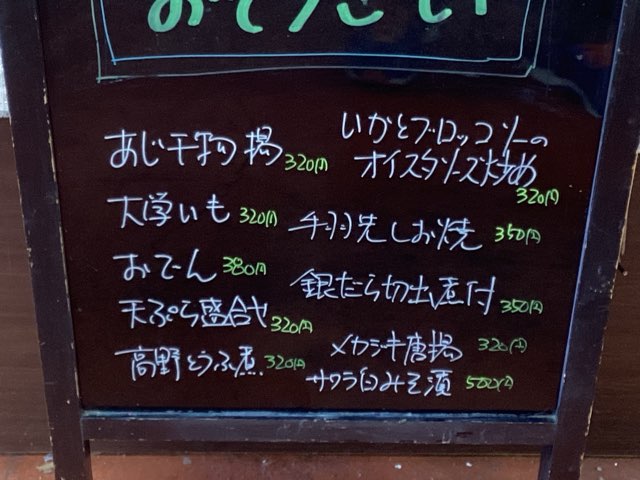 おそうざい
あじ干物揚 320円
大学いも 320円
おでーん 380円
天ぷら盛合せ 320円
高野とうふ煮 320円
いかとブロッコリーの
オイスタソーズ炒め
320円
手羽先しお焼 350円
銀だら切出煮付 350円
メカジキ唐揚 320円
サワラ白みそ漬 500円